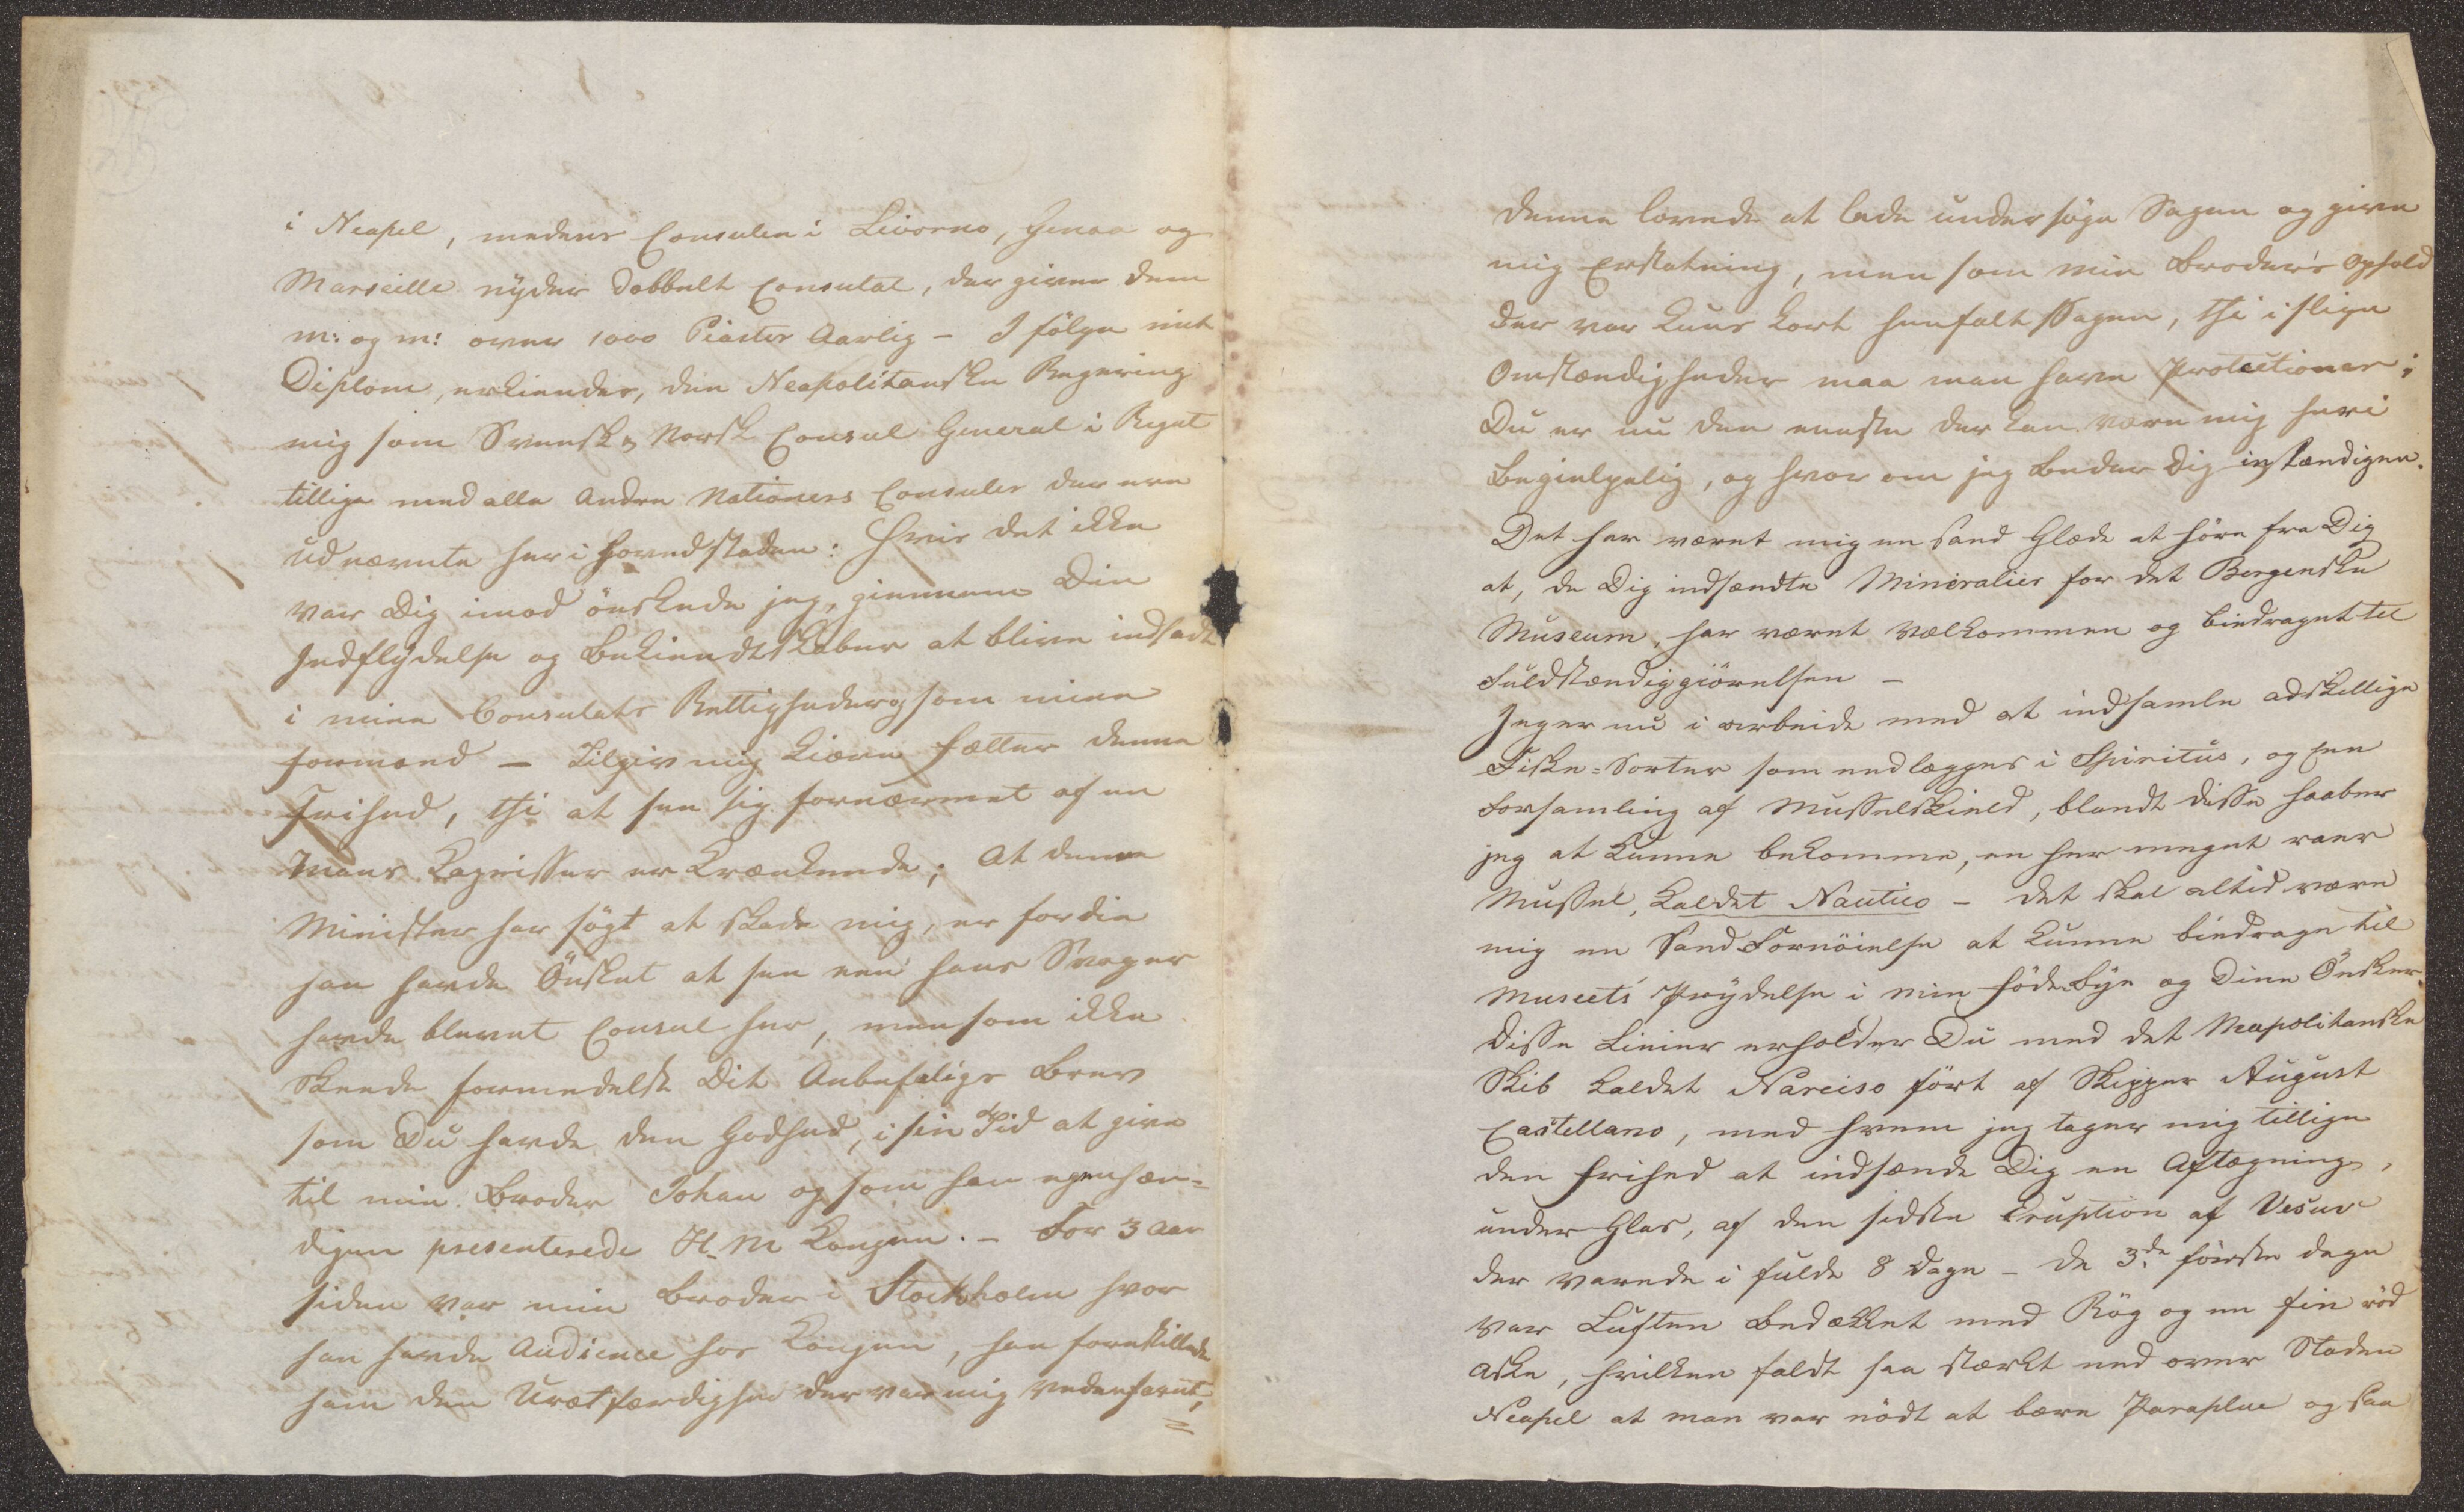 i Neapel, medens Consulen i Livorno, Genoa og
Marseille nÿder dobbelt Consulat, der giver dem
m: og m: over 1000 Piaster Aarlig – I fölge mit
Diplom, erkiender, den Neapolitanske Regering
mig som Svensk & Norsk Consul General i
tillige med alle Andre Nationers Consuler der ere
udnævnte her i Hovedstaden: Hvis det ikke
var Dig imod önskede jeg, giennem Din
Indflÿdelse og Bekiendtskaber at blive indsadt
i mine Consulats Rettigheder som mine
formænd – Tilgiv mig kiære Fætter denne
Frihed, thi at see sig fornærmet af en
Mans Kaprisser er krænkende; At denne
Minister har sögt at skade mig, er fordie
han havde Önsket at see een' hans Svoger
havde blevet Consul her, men som ikke
skeede formedelst Dit Anbefalings Brev
som Du havde den Godhed, i sin Tid at give
til min Broder Johan og som han egenhæn-
digen presenterede H. M Kongen. – For 3 Aar
siden var min Broder i Stockholm hvor
han havde Audience hos Kongen, han forestillede
ham den Urætfærdighed der var mig vederfaret,
=
denne lovede at lade undersöge Sagen og give
mig Erstatning, men som min Broder's Ophold
der var kuns kort henfaldt Sagen, thi i slige
Omstændigheder maa man have Protectioner;
Du er nu den eneste der kan være mig heri
Behielpelig, og hvor om jeg beder Dig instændigen.
Det har været mig en sand Glæde at höre fra Dig
at, de Dig indsændte Mineralier for det Bergenske
Museum, har været velkommen og biedraget til
Fuldstændiggiörelsen –
Jeg er nu i arbeide med at indsamle adskillige
Fiske=Sorter som nedlægges i Spiritus, og een
Forsamling af Musselskield, blandt disse haaber
jeg at kunne bekomme, en her meget raer
Mussel, kaldet Nautico – det skal altid være
mig en sand Fornöielse at kunne biedrage til
Museets' Prÿdelse i min födeBÿe og Dine Önsker.
Disse Linier erholder Du med det Neapolitanske
Skib kaldet Narciso fört af Skipper August
Castellano, med hvem jeg tager mig tillige
den frihed at indsænde Dig en Aftegning,
under Glas, af den sidste Eruption af Vesuv
der varede i fulde 8 Dage – De 3de förste dage
var Luften bedækket med Rög og en fin röd
Aske, hvilken faldt saa stærkt ned over Staden
Neapel at man var nödt at bære Paraplue og saa